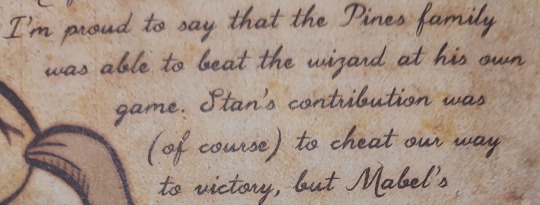 I'm proud to say that the Pines family
was able to beat the wizard at his own
game. Stan's contribution was
(of course) to cheat our way
to victory, but Mabel's